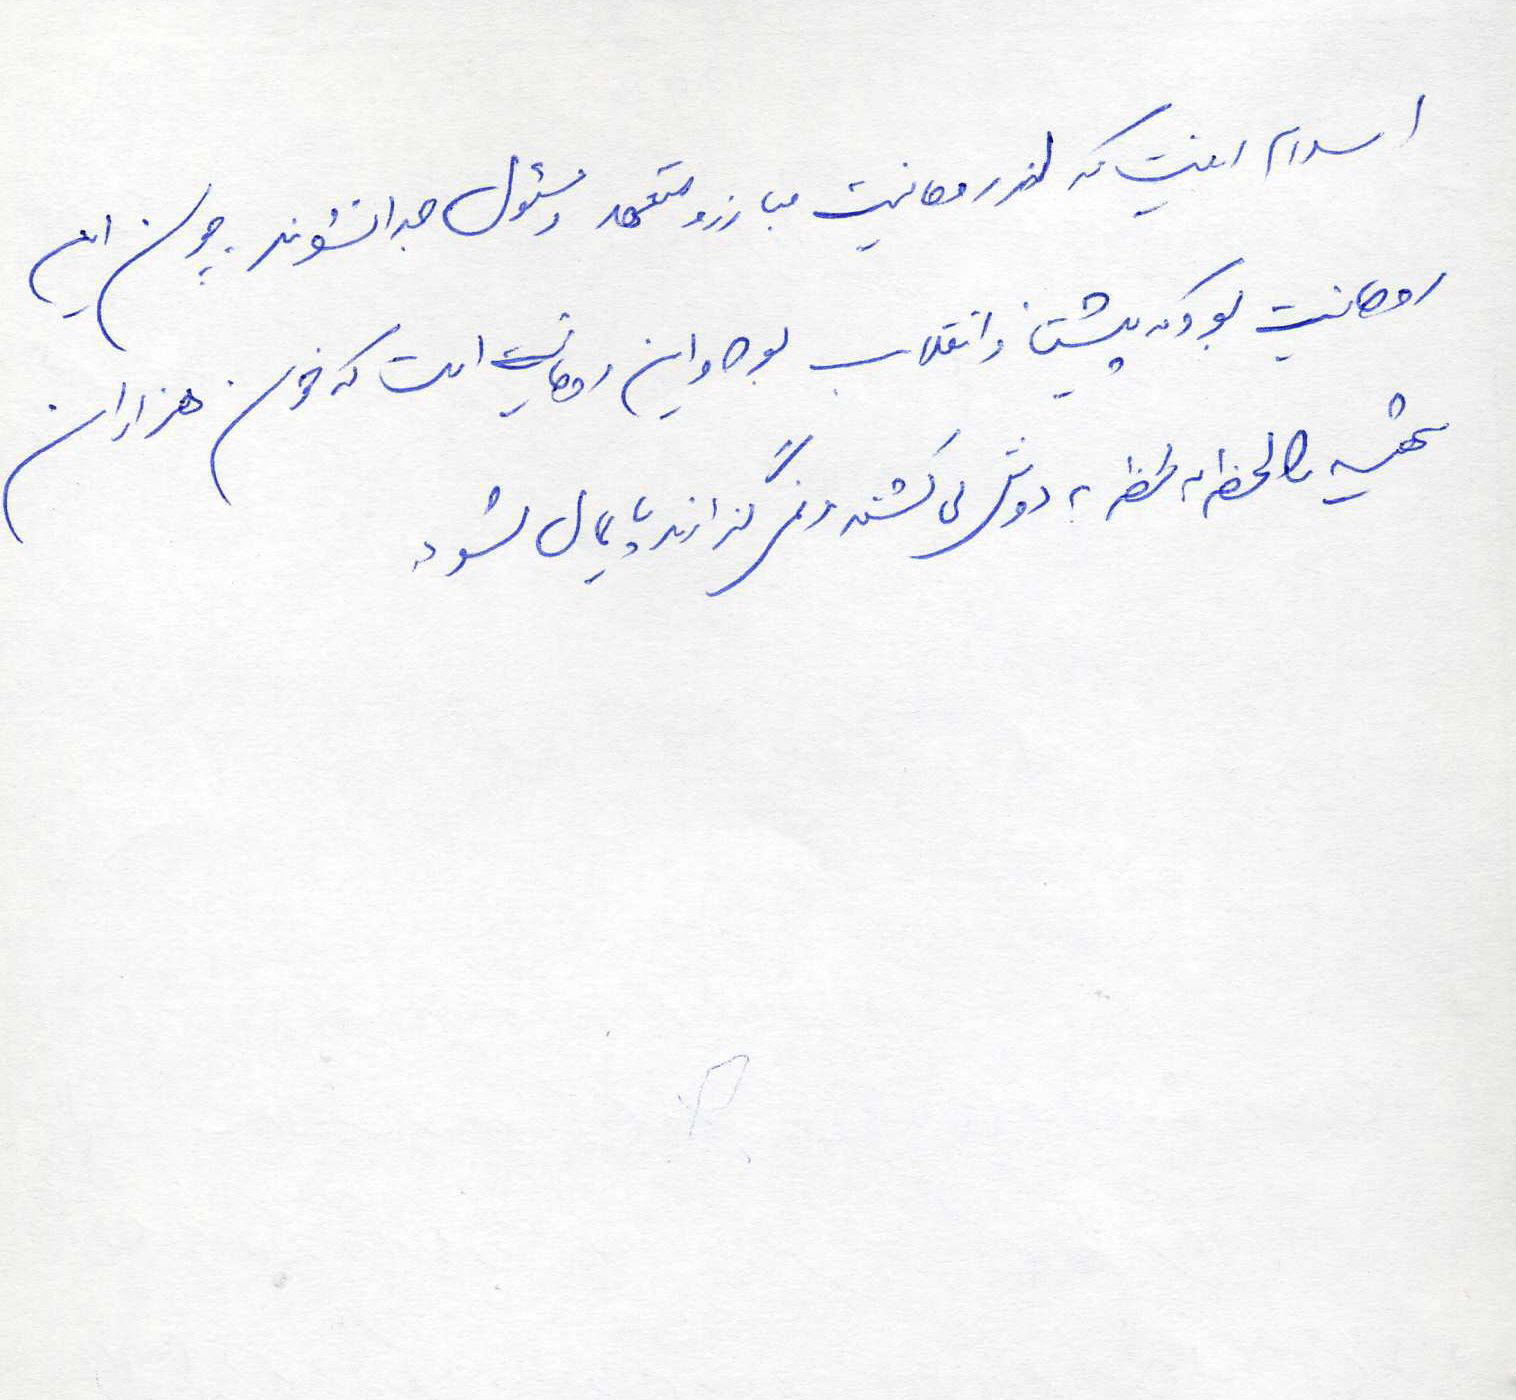 اسلام اینست که از روحانیت مبارز و متعهد و مسئول جدا نشوند. چون این
روحانیت بود که پیشتاز انقلاب بود و این روحانیت است که خون هزاران
شهید را لحظه به لحظه به دوش می کشند و نمی گذارند پایمال شود